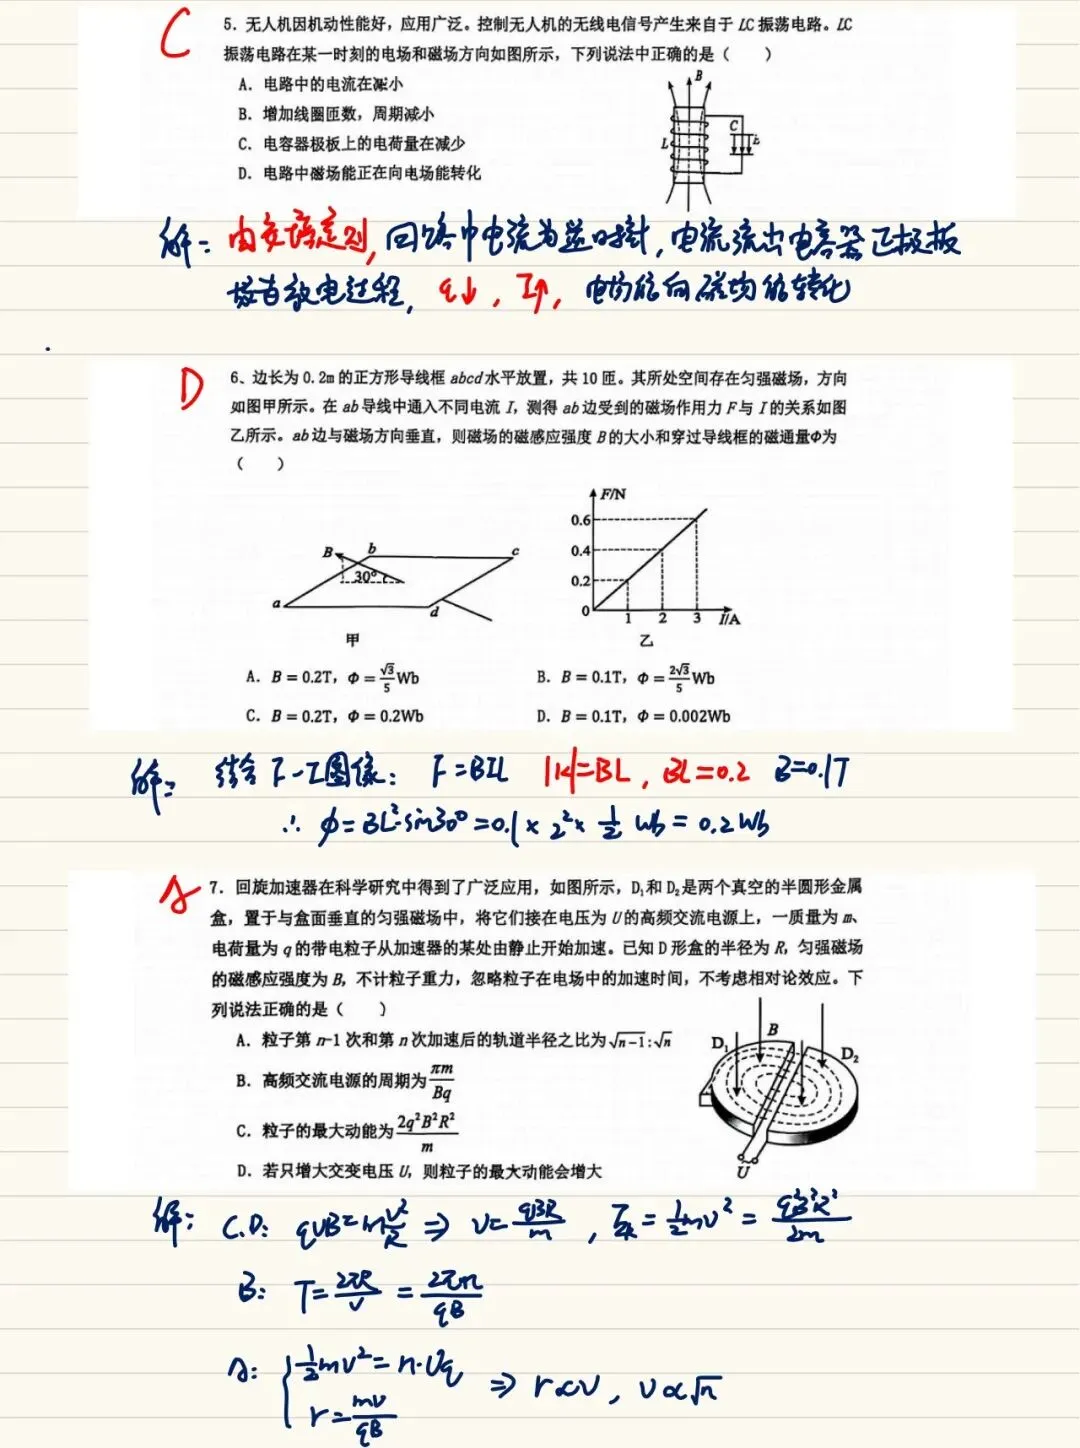 C
5. 无人机因机动性能好，应用广泛。控制无人机的无线电信号产生来自于 LC 振荡电路。LC
振荡电路在某一时刻的电场和磁场方向如图所示，下列说法中正确的是（　　）
A. 电路中的电流在减小
B. 增加线圈匝数，周期减小
C. 电容器极板上的电荷量在减少
D. 电路中磁场能正在向电场能转化
B
C
L
E
解：由安培定则，回路中电流为逆时针，电流流出电容器正极板
故为放电过程，q↓，I↑，电场能向磁场能转化
D
6、边长为 0.2m 的正方形导线框 abcd 水平放置，共 10 匝。其所处空间存在匀强磁场，方向
如图甲所示。在 ab 导线中通入不同电流 I，测得 ab 边受到的磁场作用力 F 与 I 的关系如图
乙所示。ab 边与磁场方向垂直，则磁场的磁感应强度 B 的大小和穿过导线框的磁通量Φ为
（　　）
B
b
c
30°
a
d
甲
F/N
0.6
0.4
0.2
0
1 2 3 I/A
乙
A. B = 0.2T，Φ = √3/5 Wb
B. B = 0.1T，Φ = 2√3/5 Wb
C. B = 0.2T，Φ = 0.2Wb
D. B = 0.1T，Φ = 0.002Wb
解：结合 F-I图像：F=BIL |k|=BL，BL=0.2 B=0.1T
∴ φ=BL²·sin30°=0.1×2²×1/2 Wb=0.2Wb
A
7. 回旋加速器在科学研究中得到了广泛应用，如图所示，D₁和 D₂是两个真空的半圆形金属
盒，置于与盒面垂直的匀强磁场中，将它们接在电压为 U 的高频交流电源上，一质量为 m、
电荷量为 q 的带电粒子从加速器的某处由静止开始加速。已知 D 形盒的半径为 R，匀强磁场
的磁感应强度为 B，不计粒子重力，忽略粒子在电场中的加速时间，不考虑相对论效应。下
列说法正确的是（　　）
A. 粒子第 n-1 次和第 n 次加速后的轨道半径之比为√n-1:√n
B. 高频交流电源的周期为 πm/Bq
C. 粒子的最大动能为 2q²B²R²/m
D. 若只增大交变电压 U，则粒子的最大动能会增大
D₁
B
D₂
U
解：C.D: qvB=m v²/R ⇒ v= qBR/m，Ek=1/2mv²= q²B²R²/2m
B: T= 2πR/v = 2πm/qB
A: { 1/2mv²=n·Uq
r= mv/qB
⇒ r∝v，v∝√n